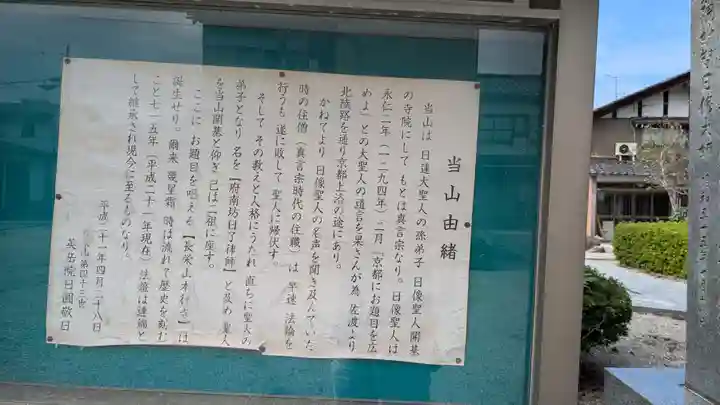 当山由緒
当山は 日蓮大聖人の孫弟子 日像聖人開基
の寺院にして もとは真言宗なり。日像聖人は
永仁二年(一二九四年)二月『京都にお題目を広
めよ』との大聖人の遺言を果さんが為 佐渡より
北陸路を通り京都上洛の途にあり。
かねてより 日像聖人の名声を聞き及んでいた
時の住僧(真言宗時代の住職)は 早速 法論を
行うも 遂に敗して 聖人に帰伏す。
そして その教えと人格にうたれ 直ちに聖人の
弟子となり 名を【府南坊日了律師】と改め 聖人
を当山開基と仰ぎ 己は二祖に座す。
ここに お題目を唱える【長栄山本行寺】は
誕生せり。爾来 幾星霜 時は流れて歴史を刻む
こと七一五年(平成二十一年現在)法燈は連綿と
して継承され現今に至るものなり。
平成二十一年四月二十八日
第四十三世
英岳院日圓敬日